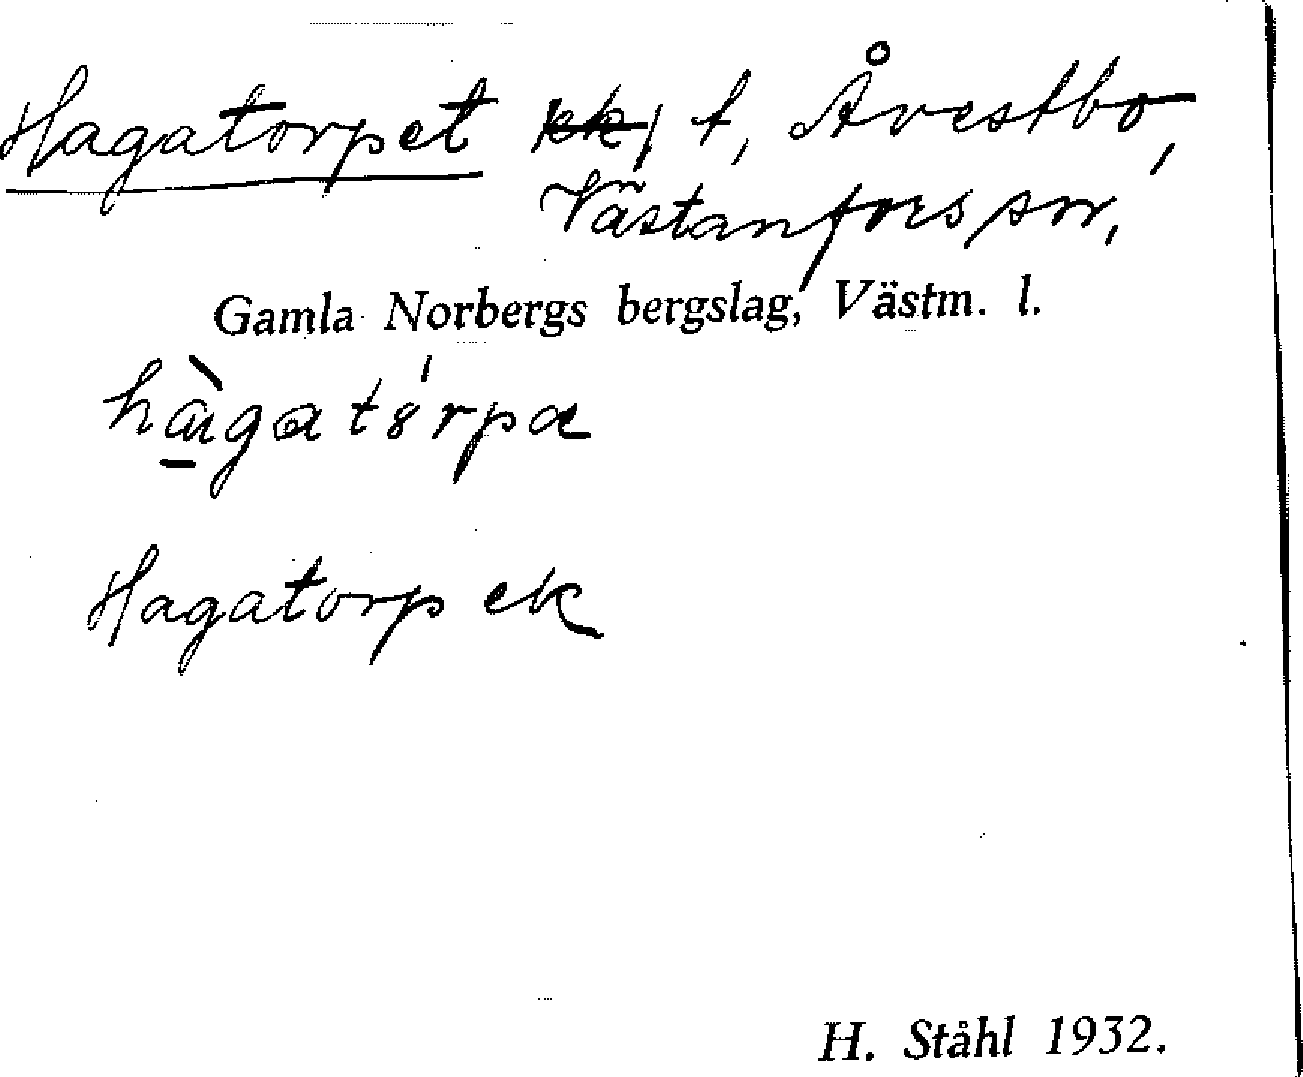 Hagatorpet ek, t, Åvestbo,
Västanfors sn,
Gamla Norbergs bergslag, Västm. l.
Hagatorp ek
H. Ståhl 1932.